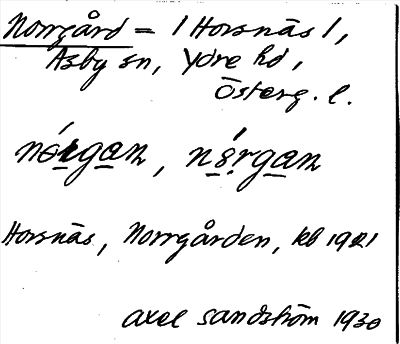 Norrgård = / Horsnäs /,
Asby sn, Ydre hd,
Österg. l.
Horsnäs, Norrgården, kb 1921
Axel Sandström 1930